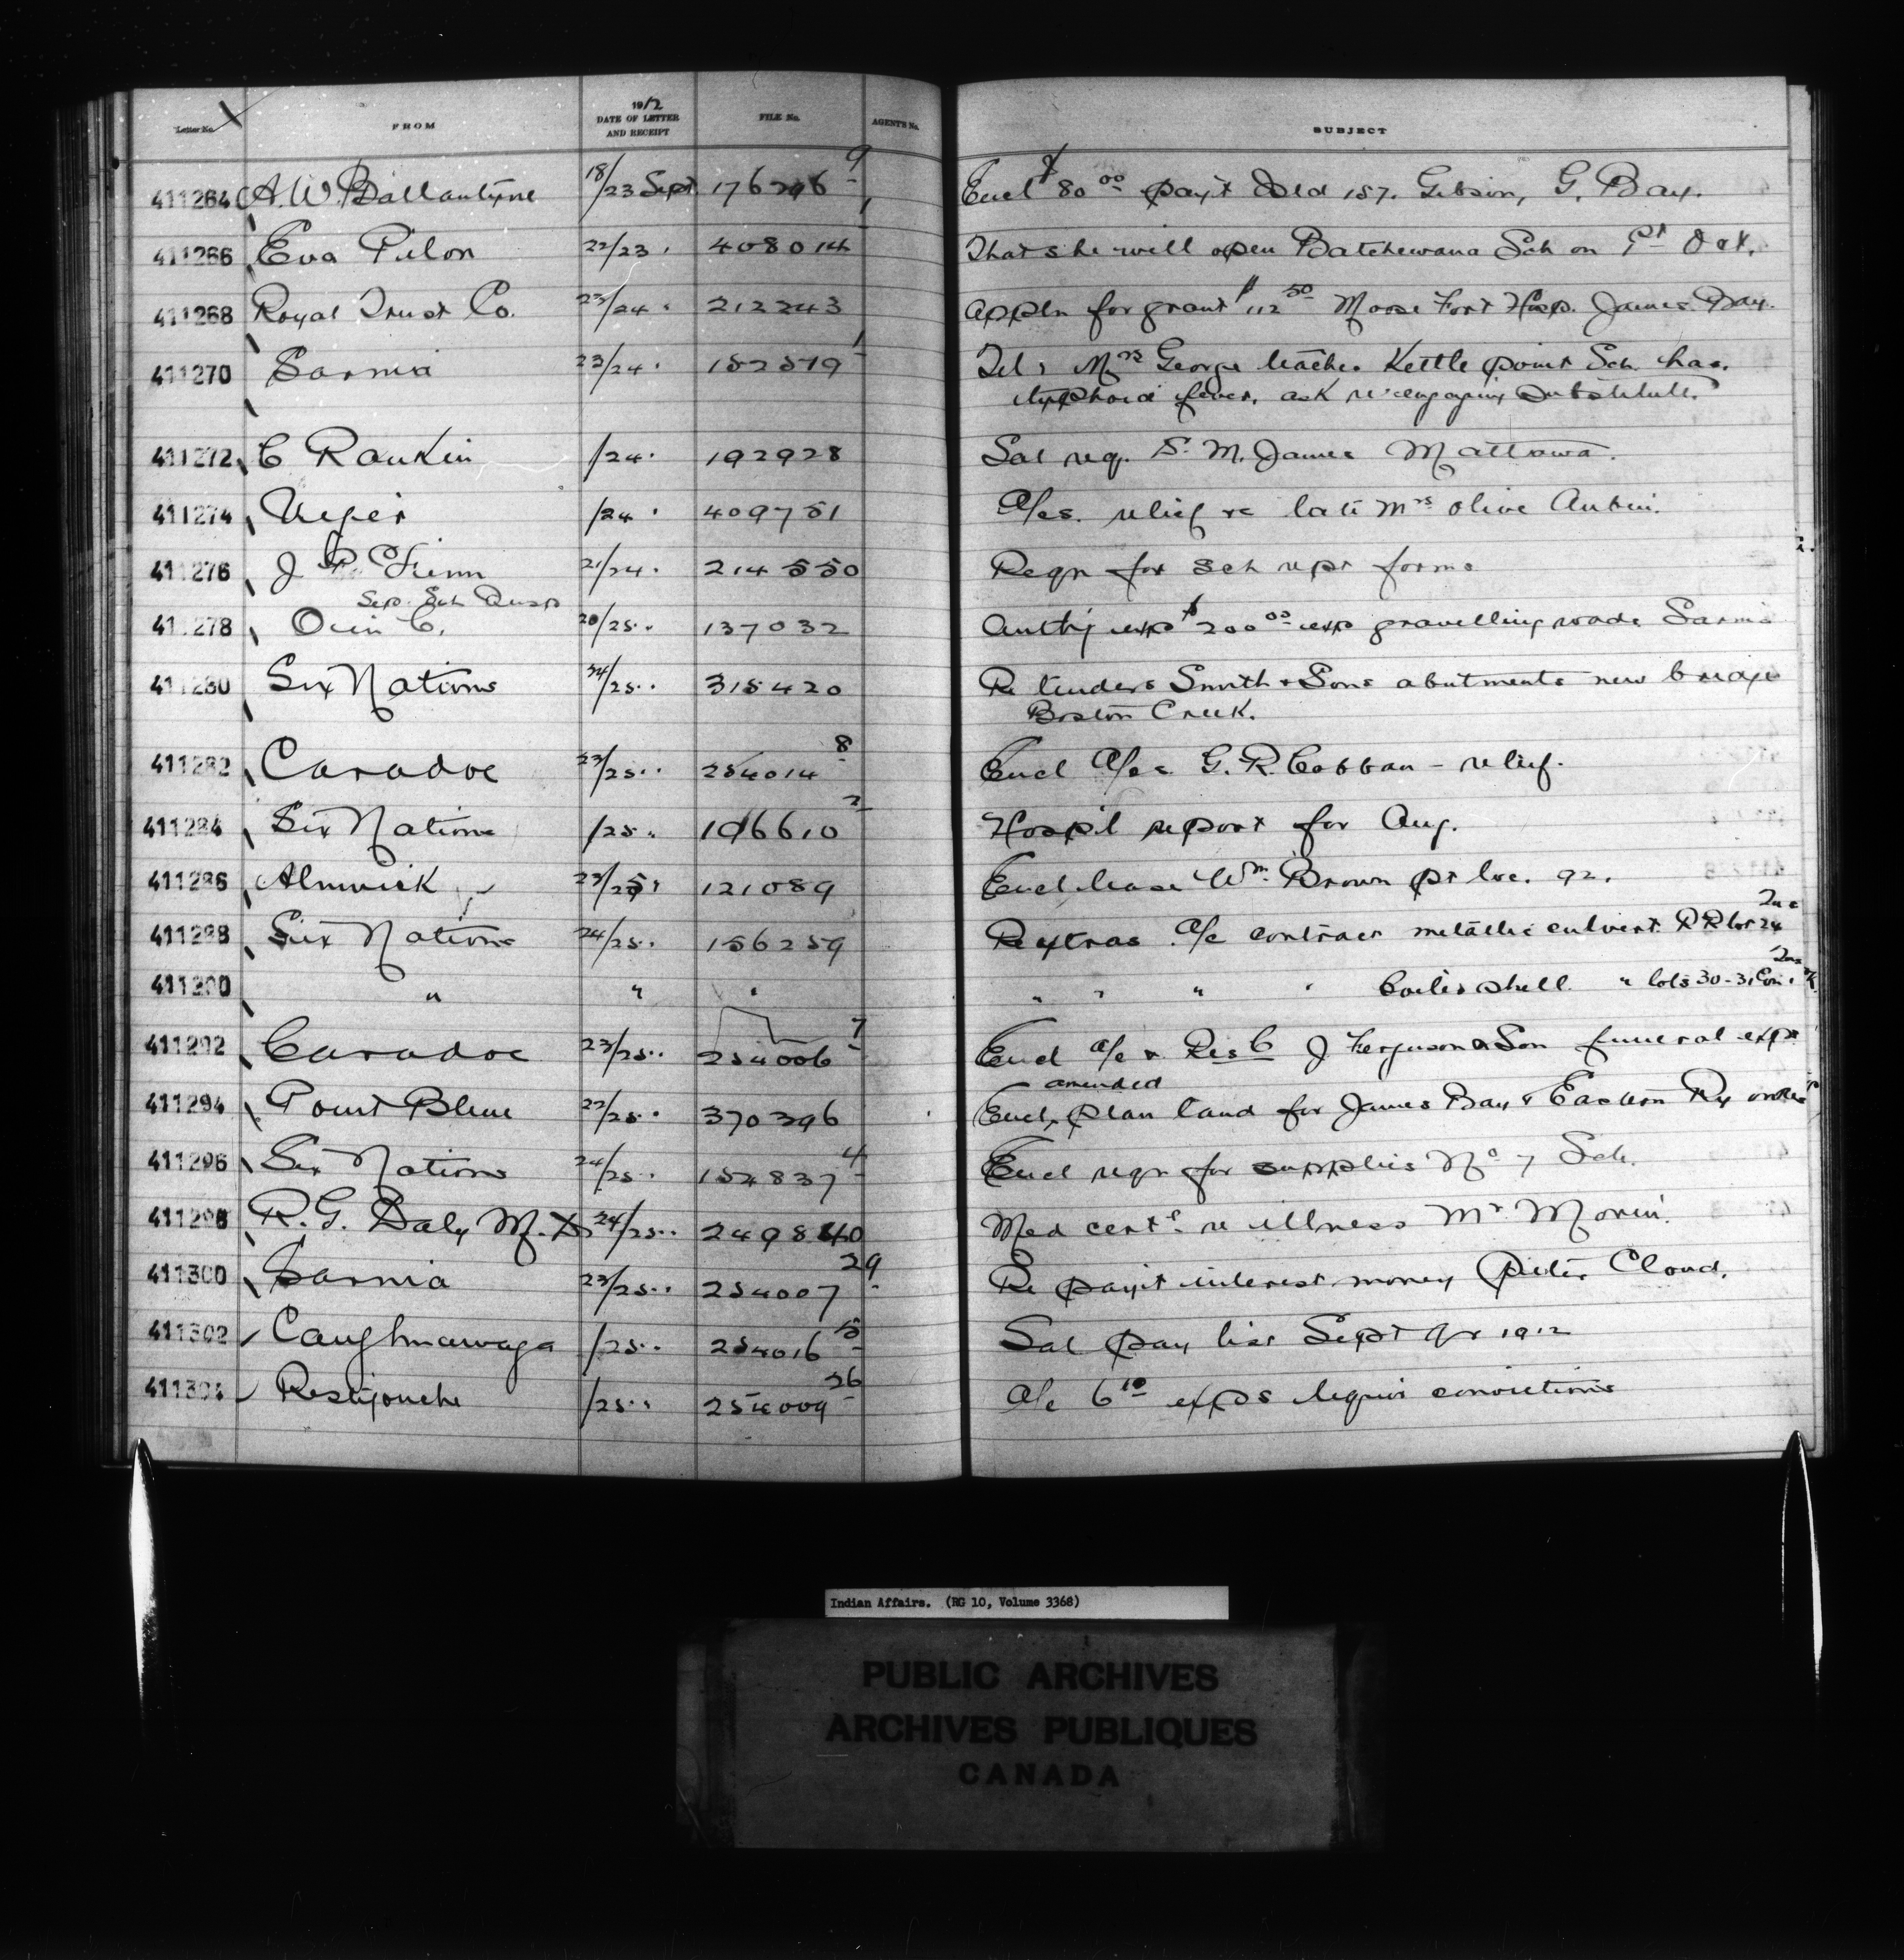 Letter No. FROM 1912 DATE OF LETTER AND RECEIPT FILE No. AGENT'S No. SUBJECT
411264 A. W. Ballantyne 18/23 Sept 176296-9 Encl $80 00 pay't Isld 157. Gibson, G. Bay.
411266 Eva Pilon 22/23 " 408014-1 That she will open Batchewana Sch on 1st Oct.
411268 Royal Trust Co. 23/24 " 212243 Appln for grant $112 50 Moose Fort Hosp. James Bay.
411270 Sarnia 23/24 " 152579-1 Tel: Mrs George teacher Kettle point Sch. has
typhoid fever, ask re engaging substitute.
411272 C Rankin /24 " 192928 Sal req. S. M. James Mattawa.
411274 /24 " 409751 A/cs. relief re late Mrs Olive Aubin.
411276 J P Finn 21/24 " 214550 Reqn for sch rept forms
Sep. Sch Insp
411278 Oin C. 20/25 " 137032 Auth'y exp $200 00 exp gravelling roads Sarnia
411280 Six Nations 24/25 " 315420 Re tenders Smith & Sons abutments new bridge
Boston Creek.
411282 Caradoc 23/25 " 254014-8 Encl A/cs G. R. Cobban - relief.
411284 Six Nations /25 " 106610-2 Hospil report for Aug.
411286 Alnwick 23/25 " 121089 Encl lease Wm. Brown pt loc. 92.
411288 Six Nations 24/25 " 156259 Re extras A/c contract metallic culvert R R lot 24 Tus
411290 " " " " " " " Boiler shell " lots 30-31 Con. Tus
411292 Caradoc 23/25 " 254006-7 Encl a/c & Res C J Ferguson & Son funeral exps
411294 Point Bleue 22/25 " 370396 Encl, amended plan land for James Bay & Eastern Ry
411296 Six Nations 24/25 " 152837-4 Encl reqn for supplies No 7 Sch.
411298 R. G. Daly M.D. 24/25 " 249840 Med cert. re illness Mr Morin.
411300 Sarnia 23/25 " 254007-29 Re pay't interest money Peter Cloud.
411302 Caughnawaga /25 " 254016-5 Sal pay list Sept qr 1912
411304 Restigouche /25 " 254009-26 A/c 6 10 exps liquor convictions
Indian Affairs. (RG 10, Volume 3368)
PUBLIC ARCHIVES
ARCHIVES PUBLIQUES
CANADA